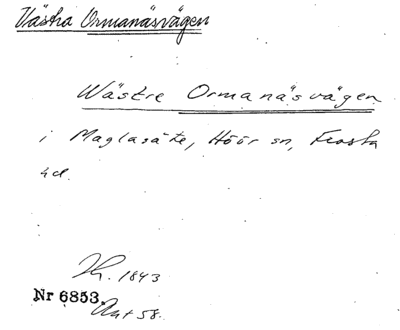 Västra Ormanäsvägen
Wästre Ormanäsvägen
i Maglasäte, Höör sn, Frosta
hd.
Lh. 1843
Nr 6853.
Akt 58.